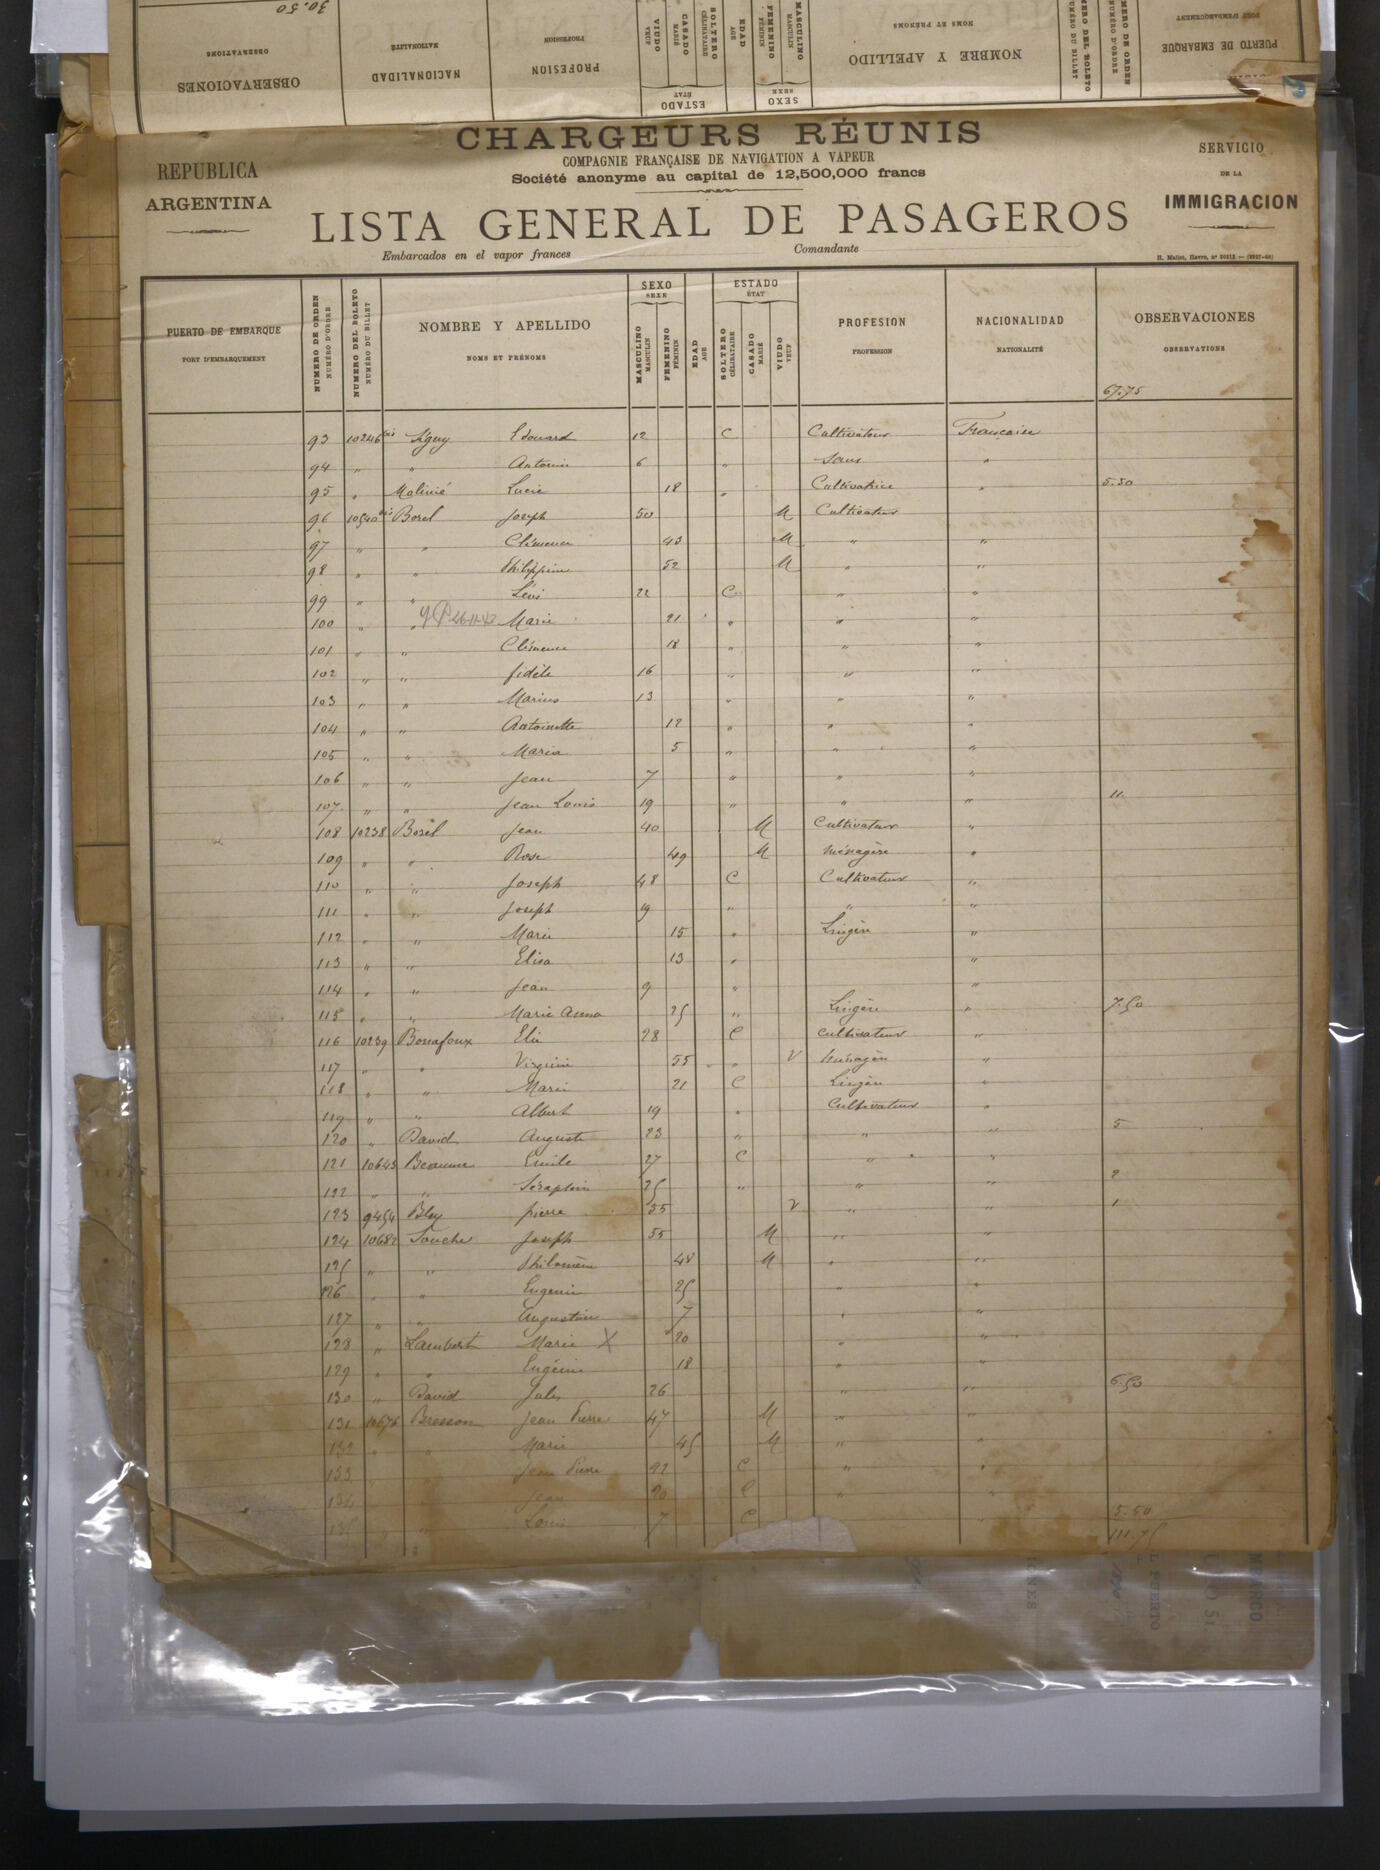 30.50
OBSERVACIONES
OBSERVATIONS
NACIONALIDAD
NATIONALITÉ
PROFESION
PROFESSION
ESTADO
ÉTAT
VIUDO
VEUF
CASADO
MARIÉ
SOLTERO
CÉLIBATAIRE
EDAD
AGE
SEXO
SEXE
FEMENINO
FÉMININ
MASCULINO
MASCULIN
NOMBRE Y APELLIDO
NOMS ET PRÉNOMS
PUERTO DE EMBARQUE
PORT D'EMBARQUEMENT
CHARGEURS RÉUNIS
COMPAGNIE FRANÇAISE DE NAVIGATION A VAPEUR
Société anonyme au capital de 12,500,000 francs
REPUBLICA
ARGENTINA
SERVICIO
DE LA
IMMIGRACION
LISTA GENERAL DE PASAGEROS
Embarcados en el vapor frances Comandante
PUERTO DE EMBARQUE
PORT D'EMBARQUEMENT
NUMÉRO DE ORDEN
NUMÉRO D'ORDRE
NUMERO DEL BOLETO
NUMÉRO DU BILLET
NOMBRE Y APELLIDO
NOMS ET PRÉNOMS
SEXO
SEXE
MASCULINO
MASCULIN
FEMENINO
FÉMININ
EDAD
AGE
ESTADO
ÉTAT
SOLTERO
CÉLIBATAIRE
CASADO
MARIÉ
VIUDO
VEUF
PROFESION
PROFESSION
NACIONALIDAD
NATIONALITÉ
OBSERVACIONES
OBSERVATIONS
67.75
93 10246 bis Edouard 12 C Cultivateur Française
94 " " Antonin 6 " Sans "
95 " Molinié Lucie 18 " Cultivatrice " 5.50
96 10540 bis Borel Joseph 50 M Cultivateur
97 " " Clémence 43 M " "
98 " " Philippine 52 M " "
99 " " Lévi 22 C " "
100 " " Marie 21 " " "
101 " " Clémence 18 " " "
102 " " fidèle 16 " " "
103 " " Marius 13 " " "
104 " " Antoinette 12 " " "
105 " " Maria 5 " " "
106 " " Jean 7 " " "
107 " " Jean Louis 19 " " " 11
108 10238 Borel Jean 40 M Cultivateur "
109 " " Rose 49 M Ménagère "
110 " " Joseph 48 C Cultivateur "
111 " " Joseph 19 " " "
112 " " Marie 15 " Lingère "
113 " " Elisa 13 " "
114 " " Jean 9 " "
115 " " Marie Anna 25 " Lingère " 7.50
116 10239 Bonnafoux Elie 28 C Cultivateur "
117 " " Virginie 55 " V Ménagère "
118 " " Marie 21 C Lingère "
119 " " Albert 19 " Cultivateur "
120 " David Auguste 23 " " " 5
121 10643 Beaume Emile 27 C " "
122 " " Séraphin 25 " " " 2
123 9454 Blay pierre 55 V " " 1
124 10682 Souche Joseph 55 M " "
125 " " Philomène 48 M " "
126 " " Eugenie 25 " "
127 " " Augustine 7 " "
128 " Lambert Marie X 20 " "
129 " " Eugénie 18 " "
130 " David Jules 26 " " 6.50
131 10676 Bresson Jean Pierre 47 M " "
132 " " Marie 45 M " "
133 Jean Pierre 22 C " "
134 Jean 20 C " "
135 " " Louis 7 C 5.50
111.75